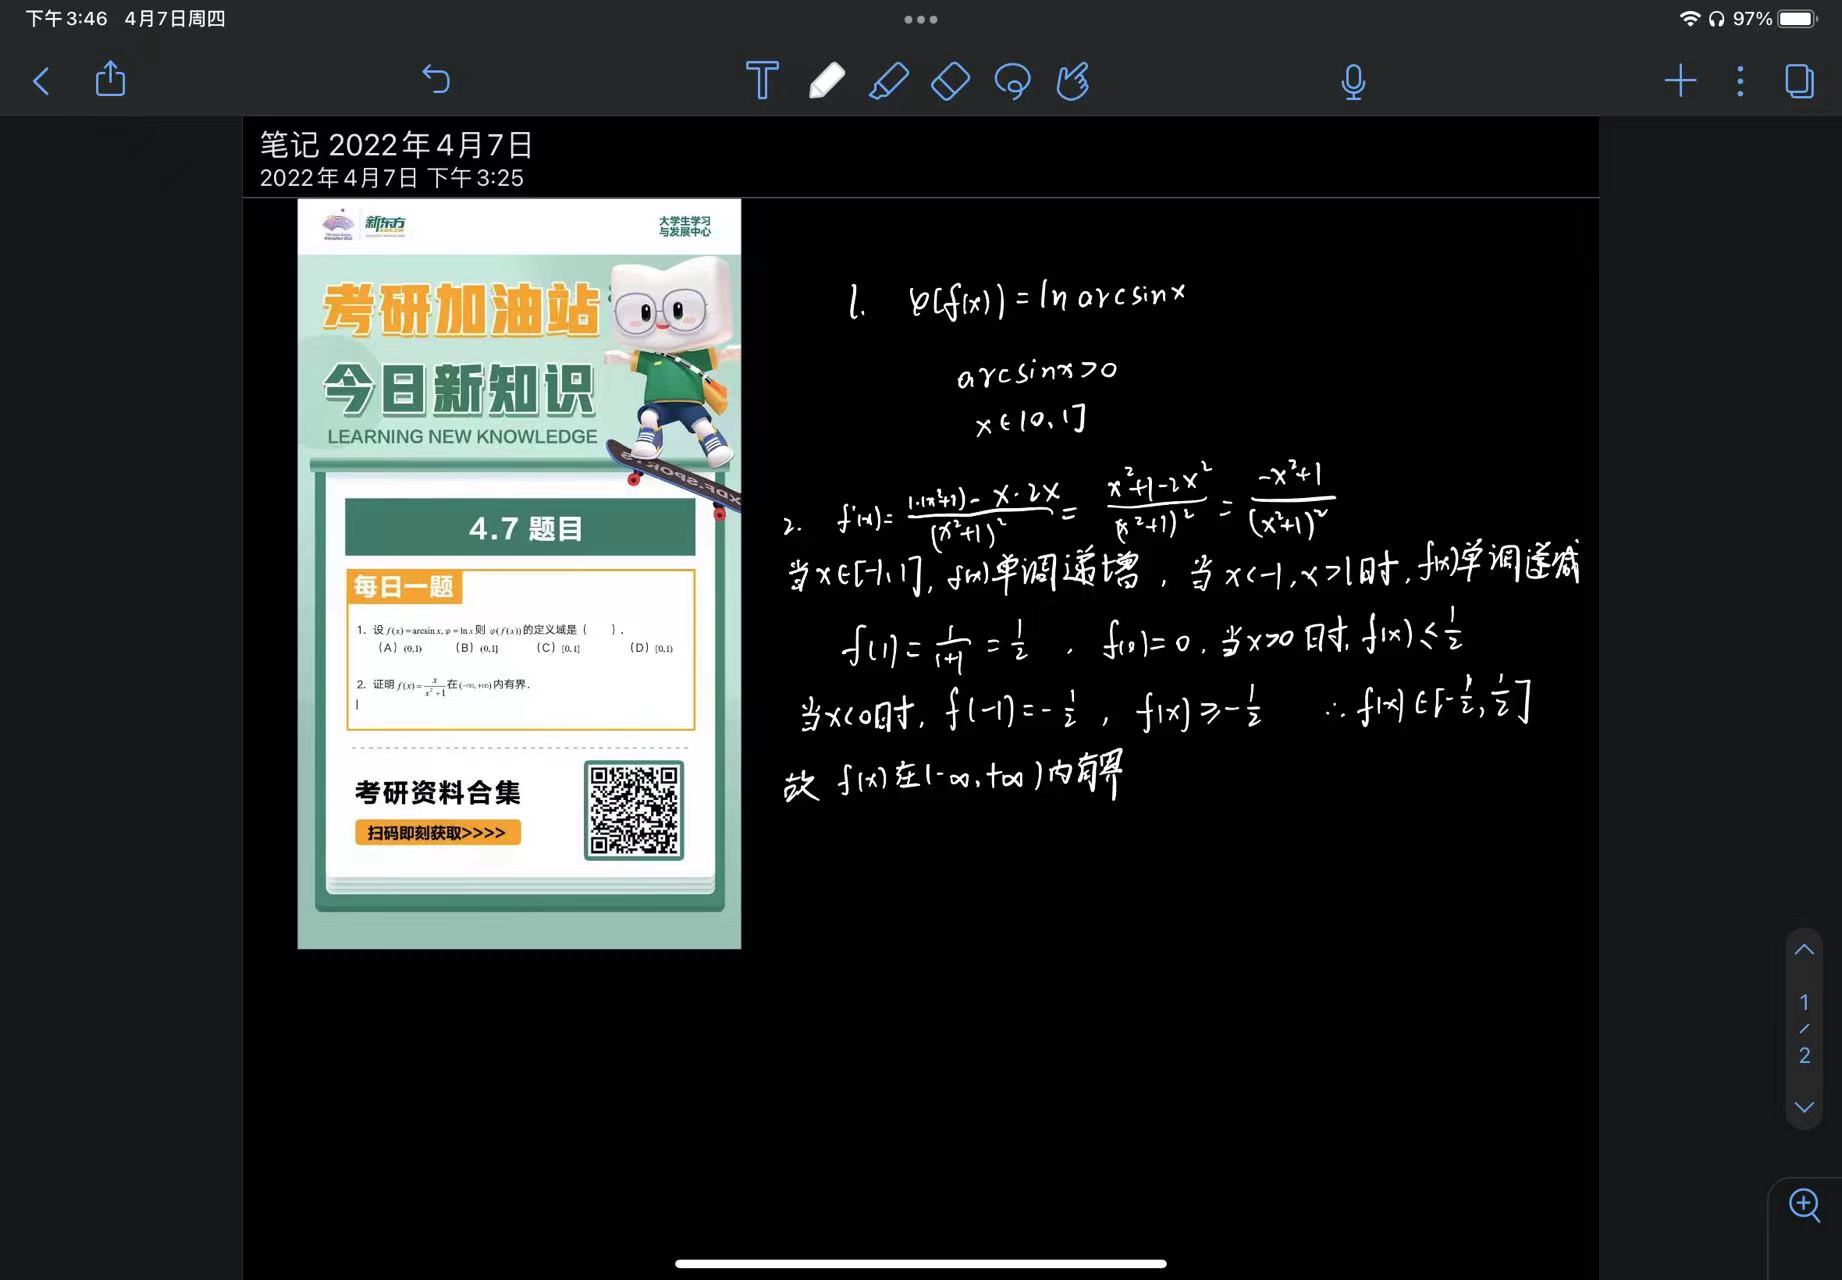 下午3:46 4月7日周四
97%
笔记 2022年4月7日
2022年4月7日 下午3:25
新东方
XDF.CN
大学生学习
与发展中心
考研加油站
今日新知识
LEARNING NEW KNOWLEDGE
XDF.SPORTS
4.7 题目
每日一题
1. 设 f(x)=arcsin x, φ=ln x 则 φ(f(x)) 的定义域是（ ）.
(A) (0,1) (B) (0,1] (C) [0,1] (D) [0,1)
2. 证明 f(x)=x/(x²+1) 在 (-∞,+∞) 内有界.
考研资料合集
扫码即刻获取>>>>
1. φ(f(x))=ln arcsinx
arcsinx>0
x∈(0,1]
2. f'(x)=(1·(x²+1)-x·2x)/(x²+1)²=(x²+1-2x²)/(x²+1)²=(-x²+1)/(x²+1)²
当x∈[-1,1], f(x)单调递增, 当x<-1, x>1时, f(x)单调递减
f(1)=1/(1+1)=1/2, f(0)=0, 当x>0时, f(x)≤1/2
当x<0时, f(-1)=-1/2, f(x)≥-1/2 ∴f(x)∈[-1/2,1/2]
故 f(x)在(-∞,+∞)内有界
1
/
2